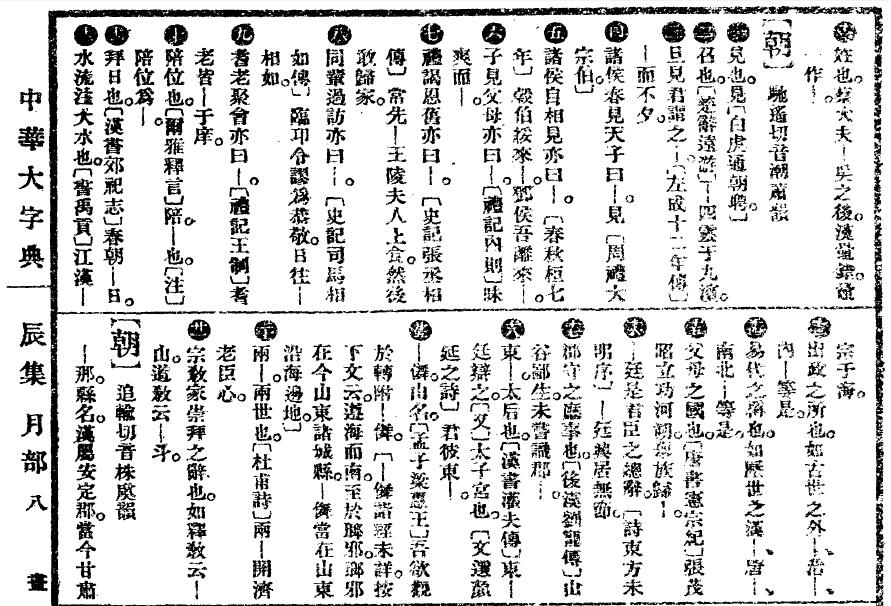 姓也。蔡大夫—吳之後。漢鼂錯
一作—。
【朝】馳遙切音潮蕭韻
㊀見也。見〔白虎通朝聘〕
㊁召也。〔楚辭遠遊〕—四靈于九濱。
㊂旦見君謂之—。〔左成十二年傳〕
—而不夕。
㊃諸侯春見天子曰—見〔周禮大
宗伯〕
㊄諸侯自相見亦曰—。〔春秋桓七
年〕穀伯綏來—。鄧侯吾離來—。
㊅子見父母亦曰—。〔禮記內則〕昧
爽而—。
㊆禮謁恩舊亦曰—。〔史記張丞相
傳〕常先—王陵夫人上食。然後
敢歸家。
㊇同輩過訪亦曰—。〔史記司馬相
如傳〕臨邛令謬為恭敬。日往—
相如。
㊈耆老聚會亦曰—。〔禮記王制〕耆
老皆—于庠。
㊉陪位也。〔爾雅釋言〕陪—也。〔注〕
陪位為—。
拜日也。〔漢書郊祀志〕春朝—日。
水流注大水也。〔書禹貢〕江漢—
宗于海。
出政之所也。如古世之外—、治—、
內—等是。
易代之稱也。如歷世之漢—、唐—、
南北—等是。
父母之國也。〔唐書憲宗紀〕張茂
昭立功河朔。舉族歸—。
—廷是君臣之總辭〔詩東方未
明序〕—廷興居無節。
郡守之廳事也。〔後漢劉寵傳〕山
谷鄙生。未嘗識郡—。
東—太后也。〔漢書灌夫傳〕東—
廷辯之。〔又〕太子宮也。〔文選顏
延之詩〕君彼東—。
—儛山名。〔孟子梁惠王〕吾欲觀
於轉附—儛。〔—儛諸經未詳按
下文云遵海而南至於瑯邪。瑯邪
在今山東諸城縣。—儛當在山東
沿海邊地〕
兩—兩世也。〔杜甫詩〕兩—開濟
老臣心。
宗教家崇拜之辭也。如釋教云—
山。道教云—斗。
【朝】追輸切音株虞韻
—那縣名。漢屬安定郡。當今甘肅
中華大字典
辰集 月部 八畫